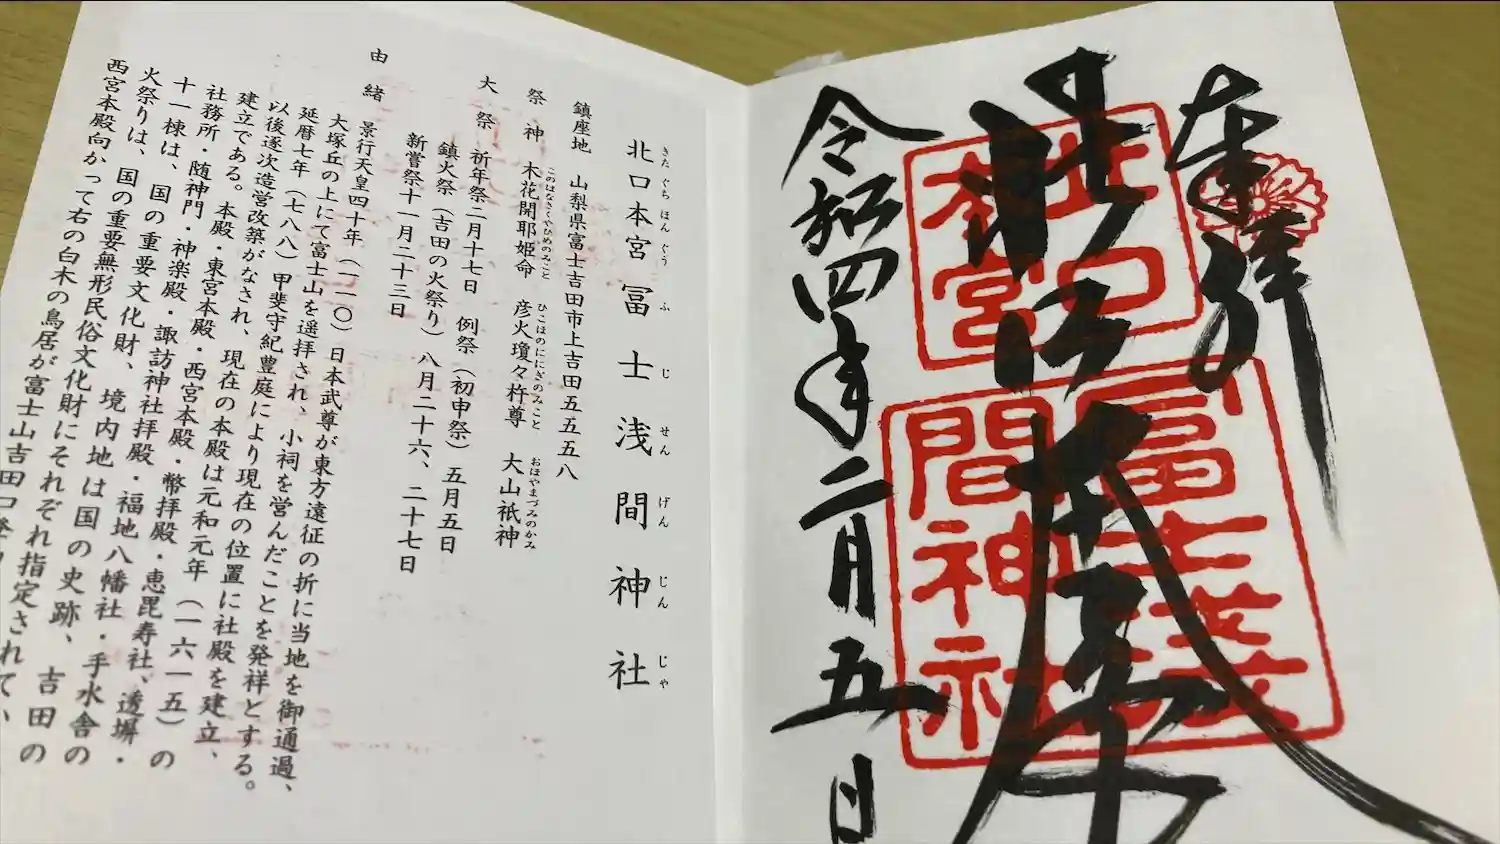 奉拝
北口本宮
冨士浅間神社
令和四年二月五日
北口本宮冨士浅間神社
きたぐちほんぐうふじせんげんじんじゃ
鎮座地 山梨県富士吉田市上吉田五五五八
祭神 木花開耶姫命 彦火瓊々杵尊 大山祇神
このはなさくやひめのみこと ひこほのににぎのみこと おほやまづみのかみ
大祭 祈年祭二月十七日 例祭（初申祭）五月五日
鎮火祭（吉田の火祭り）八月二十六、二十七日
新嘗祭十一月二十三日
由緒 景行天皇四十年（一一〇）日本武尊が東方遠征の折に当地を御通過、
大塚丘の上にて富士山を遥拝され、小祠を営んだことを発祥とする。
延暦七年（七八八）甲斐守紀豊庭により現在の位置に社殿を建立、
以後逐次造営改築がなされ、現在の本殿は元和元年（一六一五）の
建立である。本殿・東宮本殿・西宮本殿・幣拝殿・恵毘寿社、透塀・
社務所・随神門・神楽殿・諏訪神社拝殿・福地八幡社・手水舎の
十一棟は、国の重要文化財、境内地は国の史跡、吉田の
火祭りは、国の重要無形民俗文化財にそれぞれ指定されて、
西宮本殿向かって右の白木の鳥居が富士山吉田口